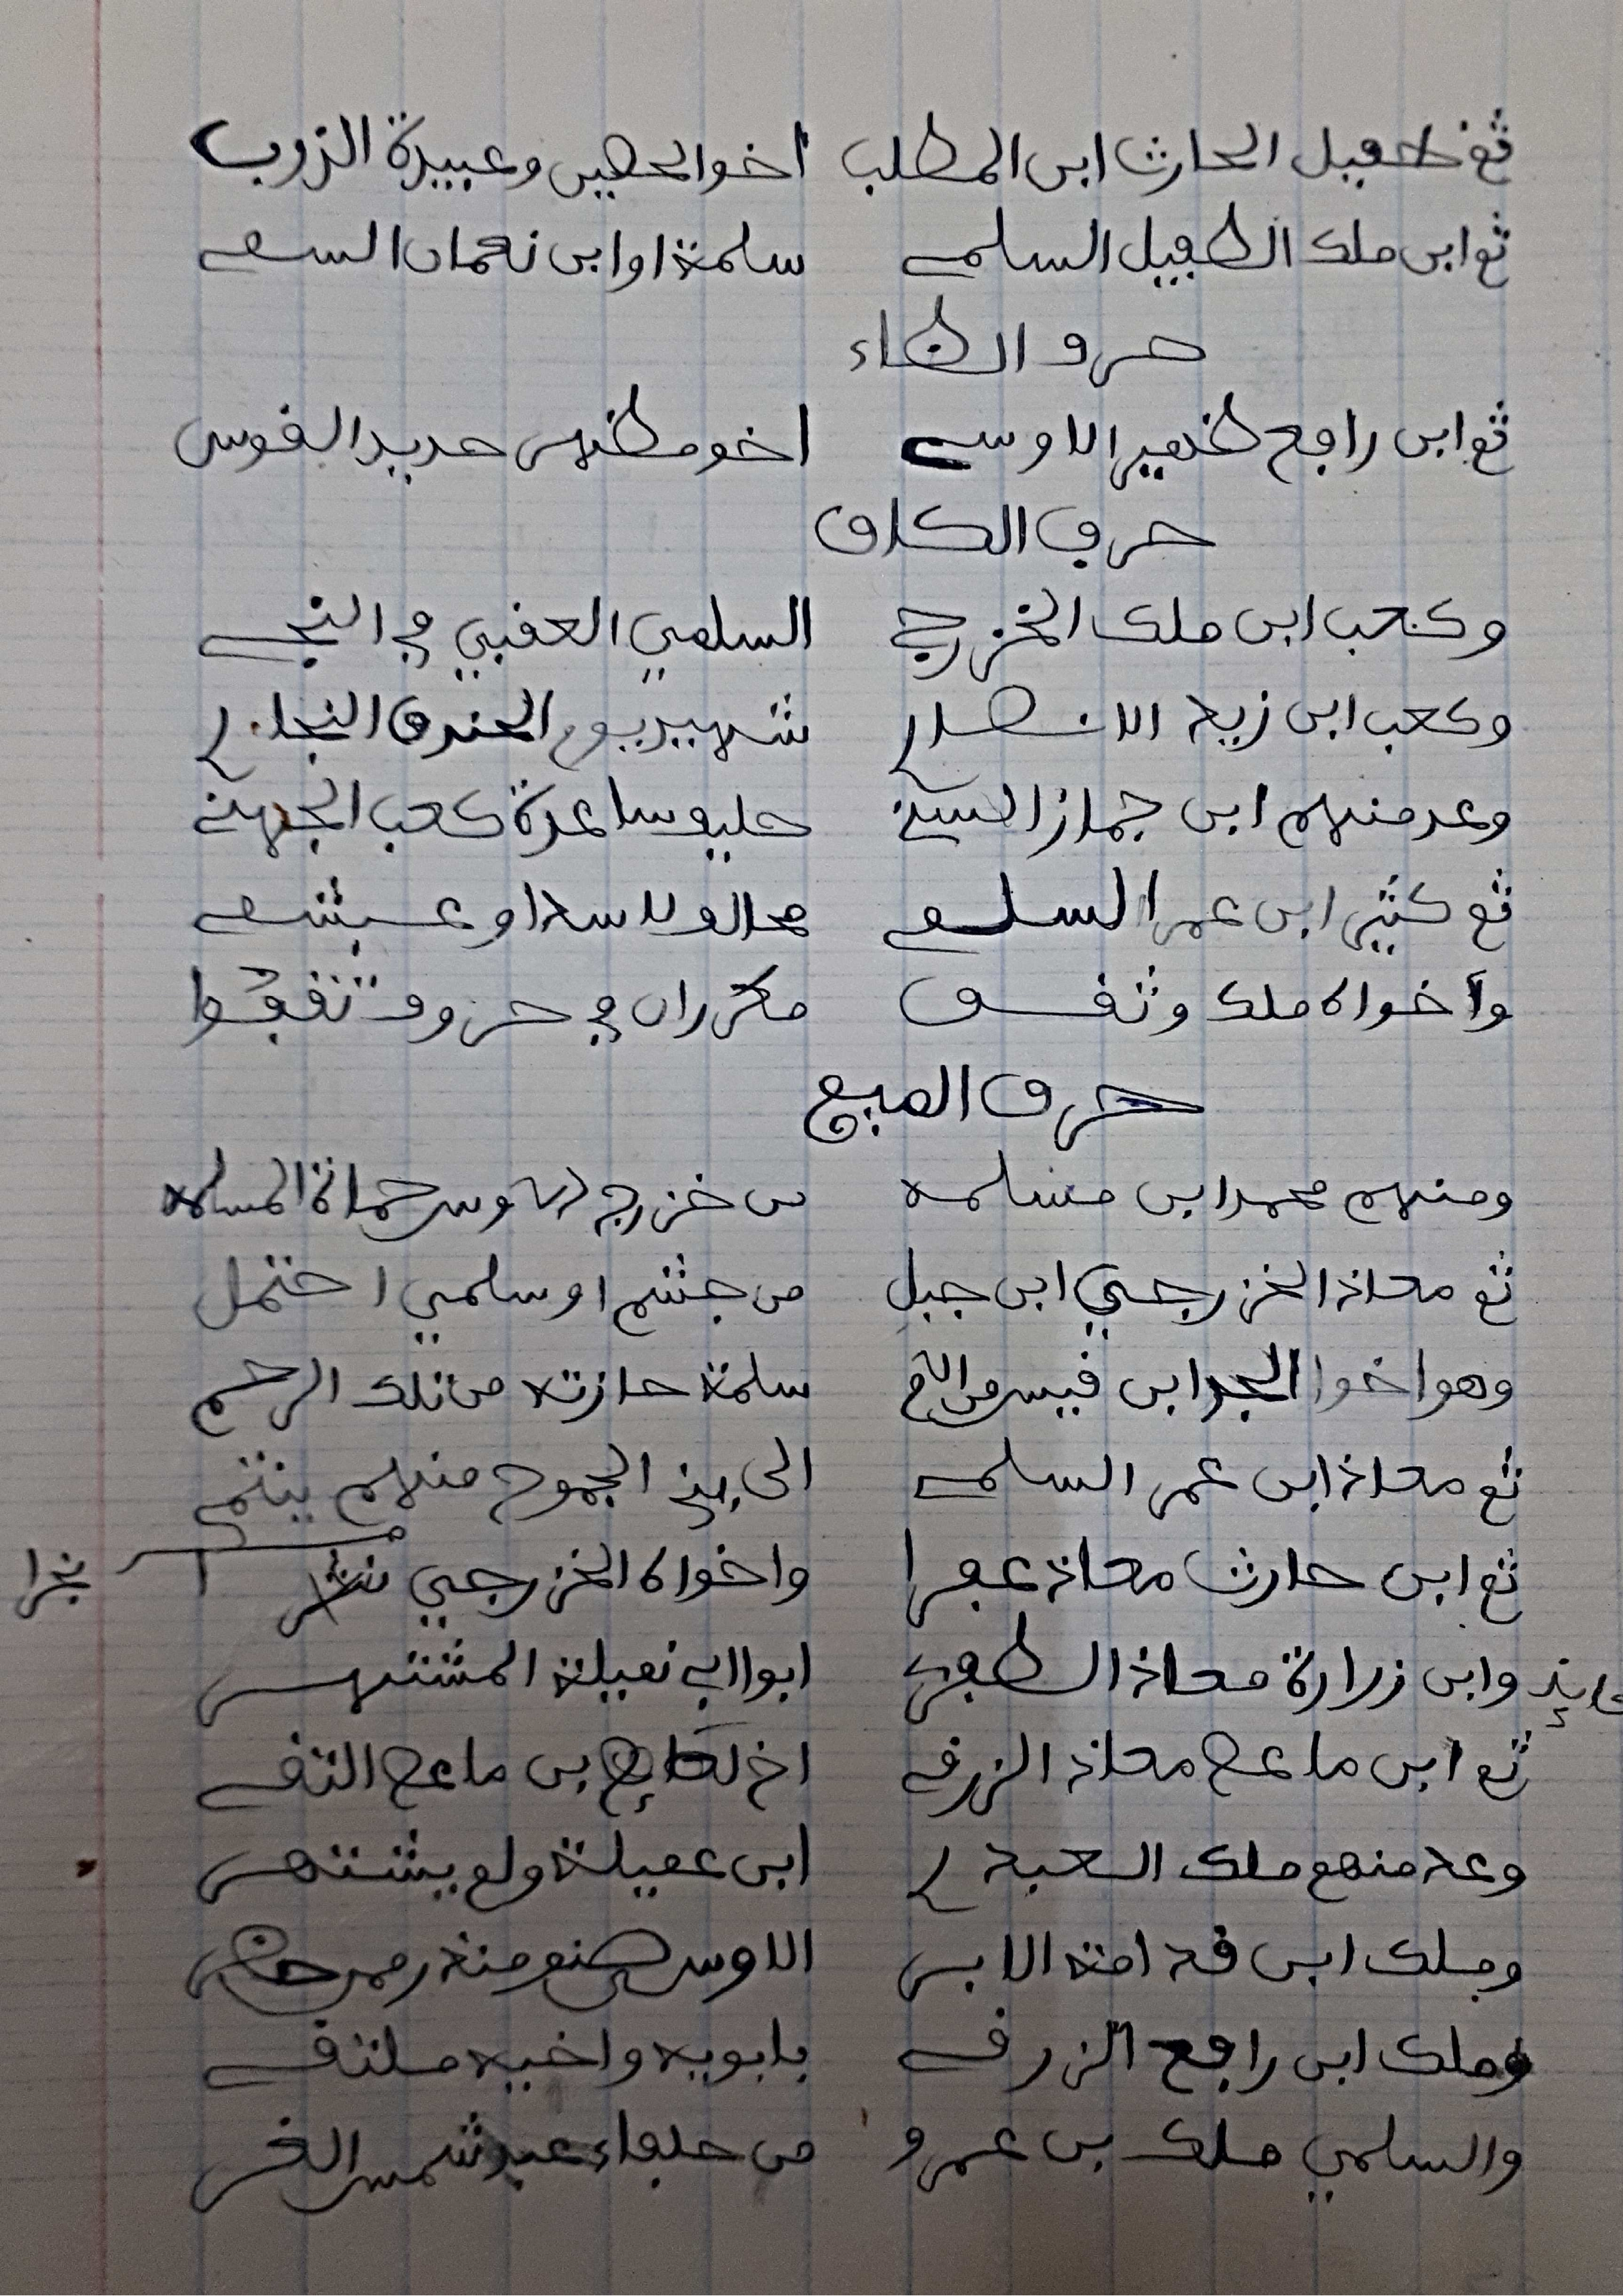 ثم طفيل الحارث ابن المطلب اخو الحصين وعبيدة
ثم ابن ملك الطفيل السلمي سلمة او ابن نعمان
حرف الظاء
ثم ابن رافع ظهير الاوسي اخو مظهر حديد القوس
حرف الكاف
وكعب ابن ملك الخزرجي السلمي العقبي في
وكعب ابن زيد الانصار شهيد يوم الخندق النجار
وعد منهم ابن جماز حليف ساعدة كعب الجهني
ثم كثير ابن عمر السلمي محالف لاسد او عبشمي
وأخواه ملك وثقف مكرران في حروف تقف
حرف الميم
ومنهم محمد ابن مسلمه من خزرج او اوس حماة المسلمه
ثم معاذ الخزرجي ابن جبل من جشم او سلمي احتمل
وهو اخوا الجد ابن قيس من الام سلمة حازته من تلك الرحم
ثم معاذ ابن عمر السلمي الى بني الجموح منهم ينتمي
ثم ابن حارث معاذ عفرا واخواه الخزرجي
وابن زرارة معاذ الظفري ابوا ابي نميلة المشتهر
ثم ابن ماعص معاذ الزرقي اخ لعائذ بن ماعص التقي
وعد منهم ملك ابن عميلة ولم يشتهر
وملك ابن قدامة الابر الاوس صنو منذر ممن حضر
وملك ابن رافع الزرقي بابويه واخيه ملتقي
والسلمي ملك بن عمرو من حلفاء عبد شمس الغر